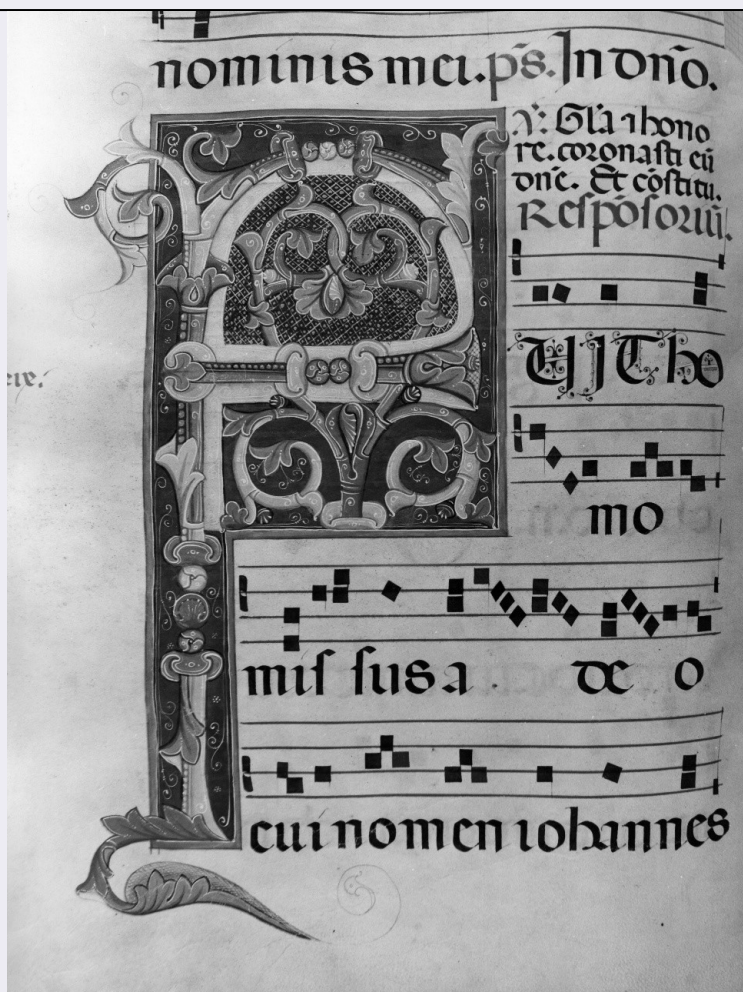 nominis mei. p̃s. In dño.
℣. Gl̃a ⁊ hono
re. coronasti eũ
dñe. Et cõstitu.
Respõsoriũ.
FUIT ho
mo
missus a de o
cui nomen iohannes